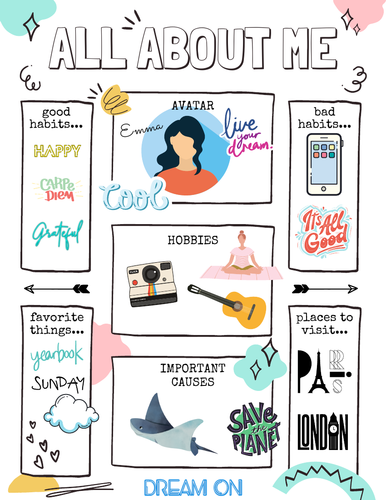 ALL ABOUT ME
good
habits...
HAPPY
CARPE
DIEM
Grateful
AVATAR
Emma
live
your
dream!
cool
bad
habits...
It's
All
Good
HOBBIES
favorite
things...
yearbook
SUNDAY
IMPORTANT
CAUSES
SAVE
the
PLANET
places to
visit...
PARIS
LONDON
DREAM ON